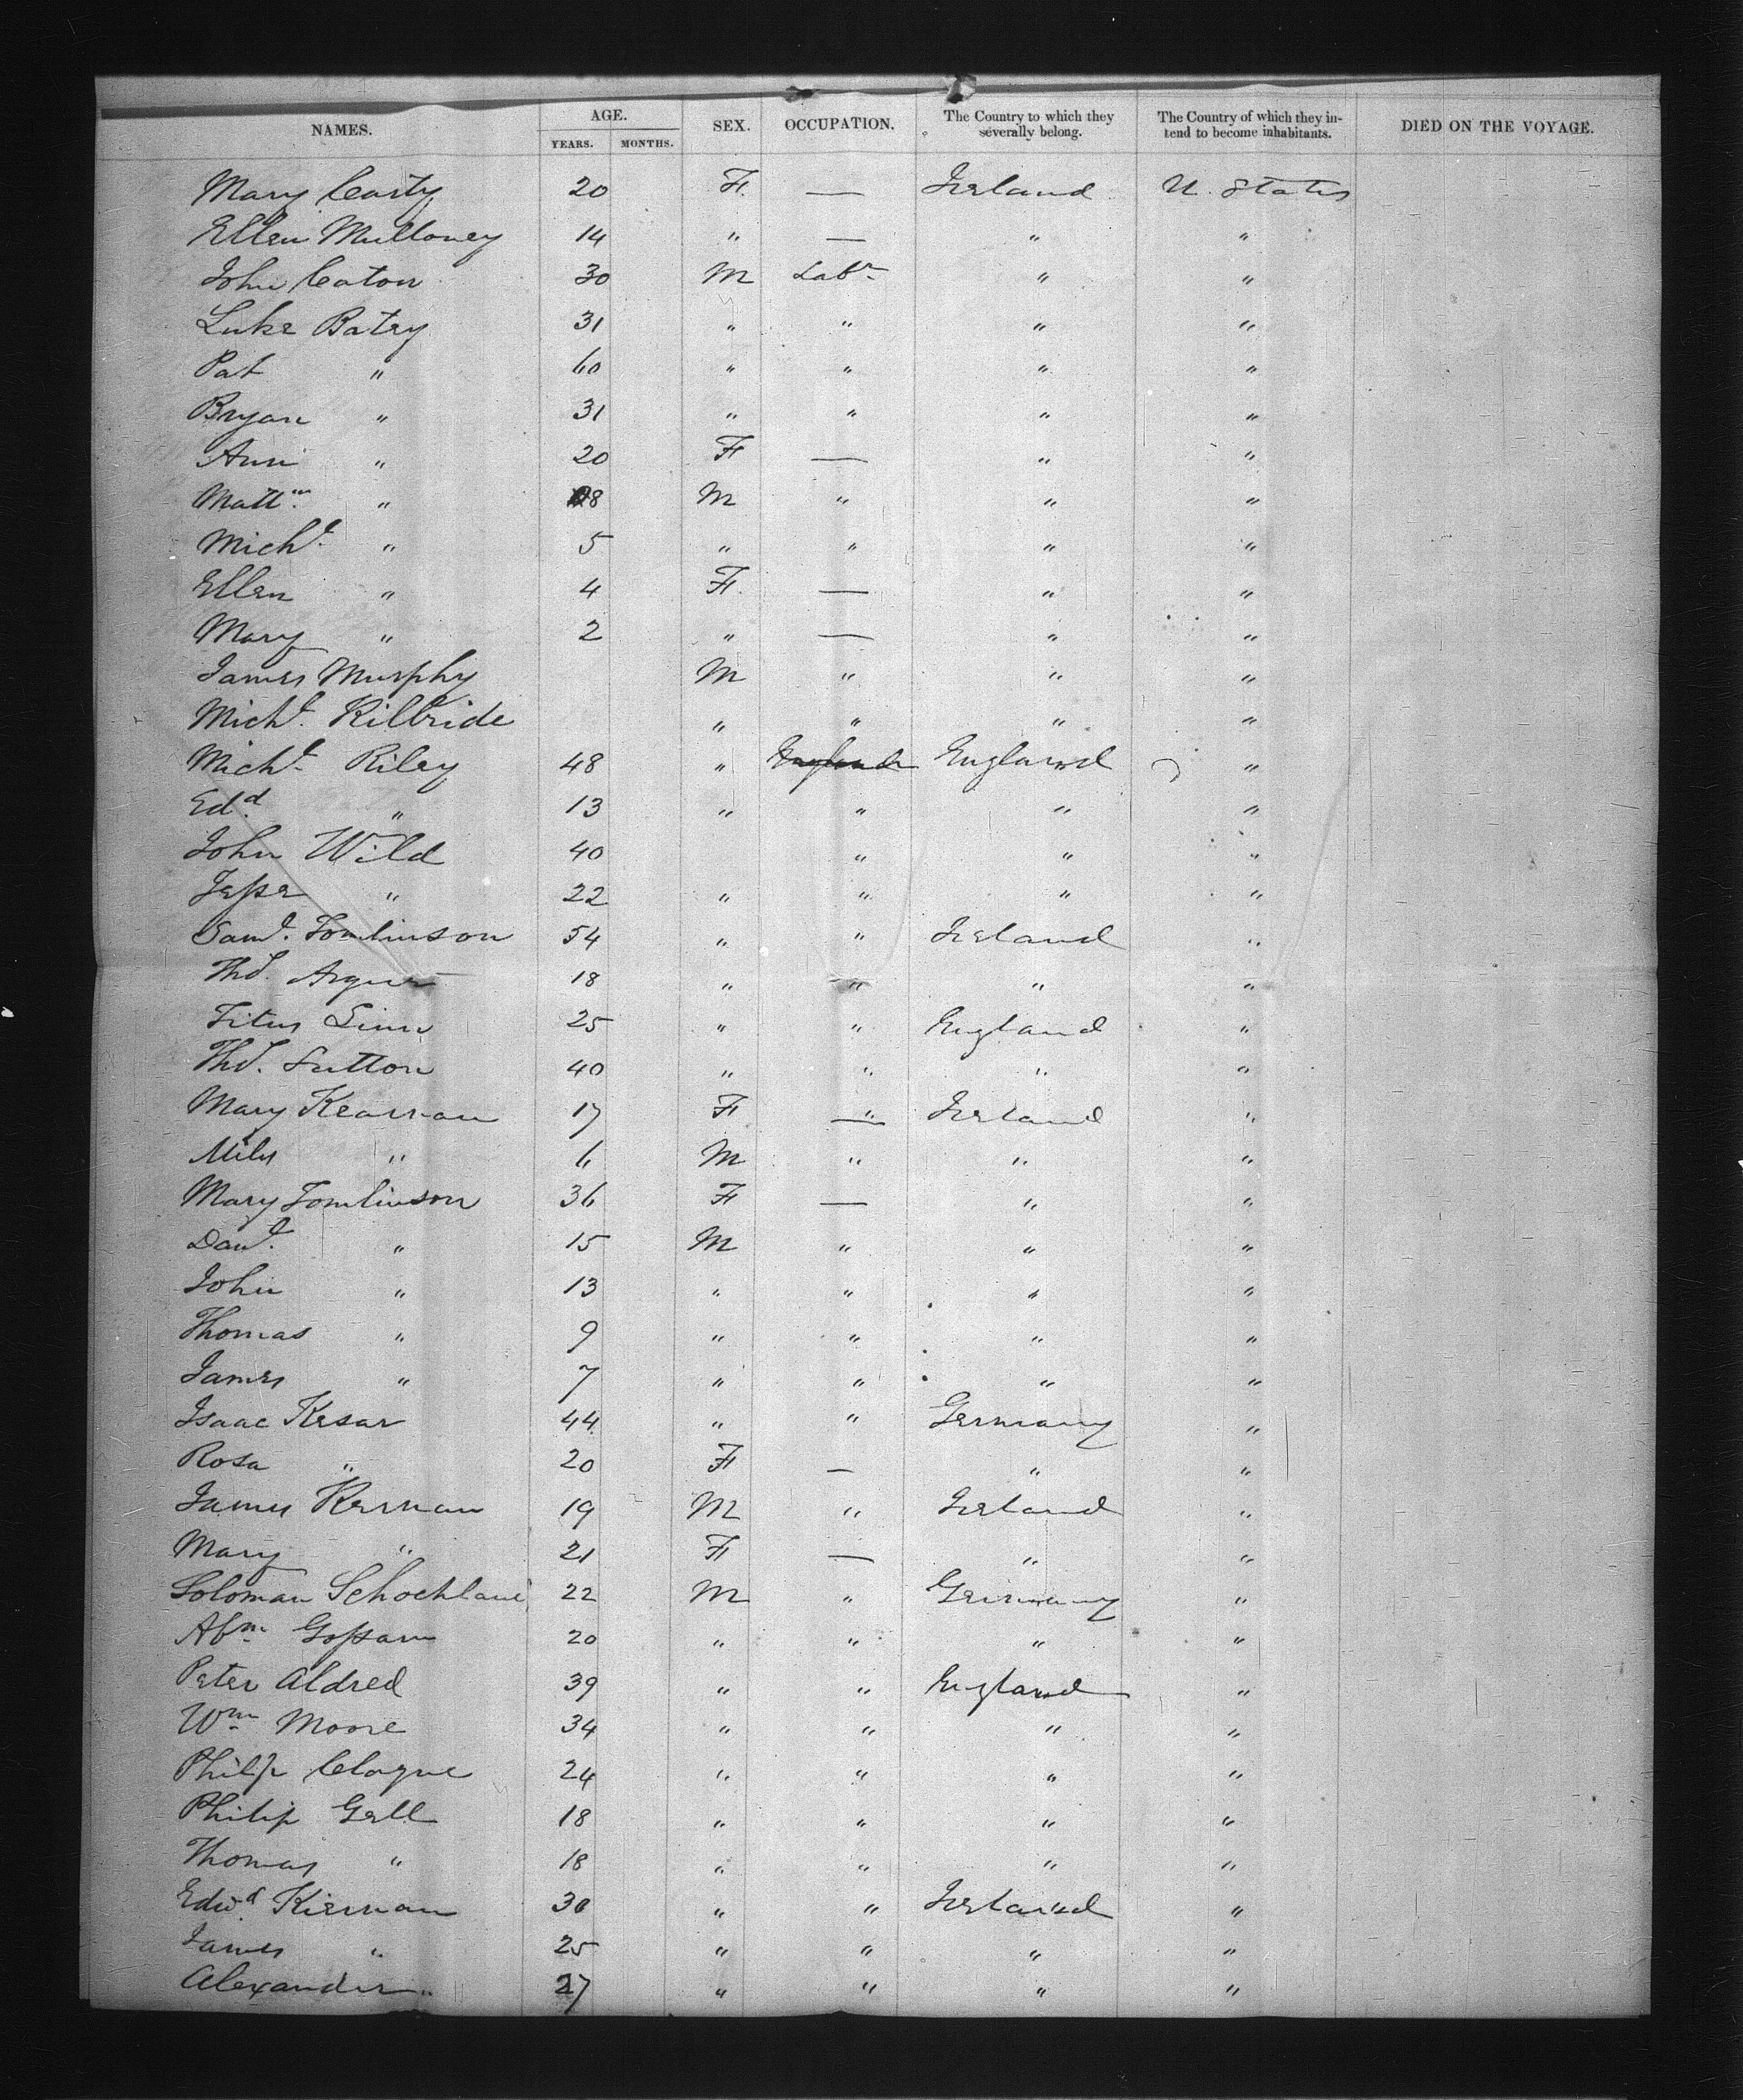 NAMES. AGE. SEX. OCCUPATION. The Country to which they severally belong. The Country of which they intend to become inhabitants. DIED ON THE VOYAGE.
YEARS. MONTHS.
Mary Carty 20 F. — Ireland U. States
Ellen Mulloney 14 " — " "
John Caton 30 M Labr " "
Luke Batey 31 " " " "
Pat " 60 " " " "
Bryan " 31 " " " "
Ann " 20 F — " "
Mattw " 8 M " " "
Michl " 5 " " " "
Ellen " 4 F. — " "
Mary " 2 " — " "
James Murphy M " " "
Michl Kilbride " " " "
Michl Riley 48 " England "
Edd " 13 " " " "
John Wild 40 " " "
Jesse " 22 " " " "
Saml. Tomlinson 54 " " Ireland "
Thos. 18 " " " "
Titus 25 " " England "
Thos. Sutton 40 " " " "
Mary Kearnan 17 F — " Ireland "
Miles " 6 M " " "
Mary Tomlinson 36 F — " "
Danl. " 15 M " " "
John " 13 " " " "
Thomas " 9 " " " "
James " 7 " " " "
Isaac Kesar 44 " " Germany "
Rosa " 20 F — " "
James Kernan 19 M " Ireland "
Mary " 21 F — " "
Soloman 22 M " Germany "
Abm 20 " " " "
Peter Aldred 39 " " England "
Wm Moore 34 " " " "
Philip Clague 24 " " " "
Philip Gell 18 " " " "
Thomas " 18 " " " "
Edwd Kiernan 30 " " Ireland "
James " 25 " " " "
Alexander " 27 " " " "